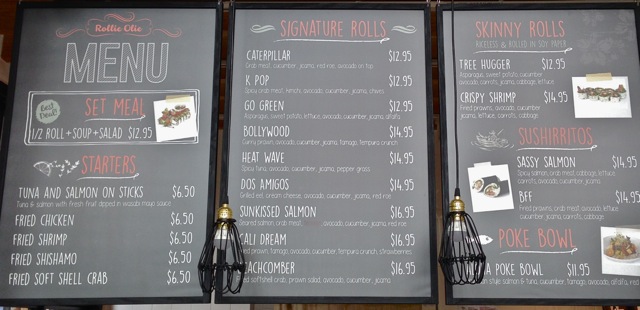 Rollie Olie
MENU
Best Deal!
SET MEAL
1/2 ROLL + SOUP + SALAD $12.95
STARTERS
TUNA AND SALMON ON STICKS $6.50
Tuna & salmon with fresh fruit dipped in wasabi mayo sauce
FRIED CHICKEN $6.50
FRIED SHRIMP $6.50
FRIED SHISHAMO $6.50
FRIED SOFT SHELL CRAB $6.50
SIGNATURE ROLLS
CATERPILLAR $12.95
Crab meat, cucumber, jicama, red roe, avocado on top
K POP $12.95
Spicy crab meat, kimchi, avocado, cucumber, jicama, chives
GO GREEN $12.95
Asparagus, sweet potato, lettuce, cucumber, avocado, jicama, alfalfa
BOLLYWOOD $14.95
Curry prawn, avocado, cucumber, jicama, tamago, tempura crunch
HEAT WAVE $14.95
Spicy tuna, avocado, cucumber, jicama, pepper grass
DOS AMIGOS $14.95
Grilled eel, cream cheese, avocado, cucumber, jicama, red roe
SUNKISSED SALMON $16.95
Seared salmon, crab meat, avocado, cucumber, jicama, red roe
CALI DREAM $16.95
prawn, tamago, avocado, cucumber, tempura crunch, strawberries
$16.95
softshell crab, prawn salad, avocado, cucumber, jicama
SKINNY ROLLS
RICELESS & ROLLED IN SOY PAPER
TREE HUGGER $12.95
Asparagus, sweet potato, cucumber
carrots, avocado, jicama, cabbage, lettuce
CRISPY SHRIMP $14.95
Fried prawns, avocado, cucumber,
lettuce, carrots, cabbage
SUSHIRRITOS
SASSY SALMON $14.95
Spicy salmon, crab meat, cabbage, lettuce
carrots, avocado, cucumber, jicama
BFF $14.95
Fried prawns, crab meat, avocado, lettuce
cucumber, jicama, carrots, cabbage
POKE BOWL
POKE BOWL $11.95
style salmon & tuna, cucumber, tamago, avocado, alfalfa, red